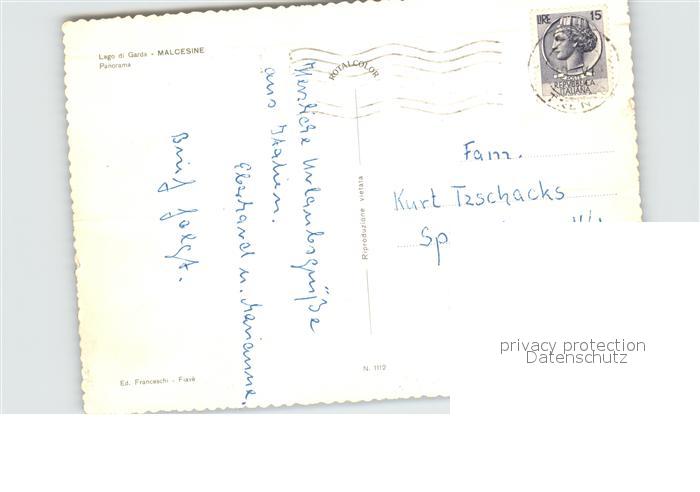 Lago di Garda - MALCESINE
Panorama
ROTALCOLOR
LIRE 15
REPUBBLICA
ITALIANA
Herzliche Urlaubsgrüße
aus Italien.
Eberhard u. Marianne.
Brief folgt.
Riproduzione vietata
Fam.
Kurt Tzschacks
Sp
Ed. Franceschi - Fiavè
N. 1112
privacy protection
Datenschutz